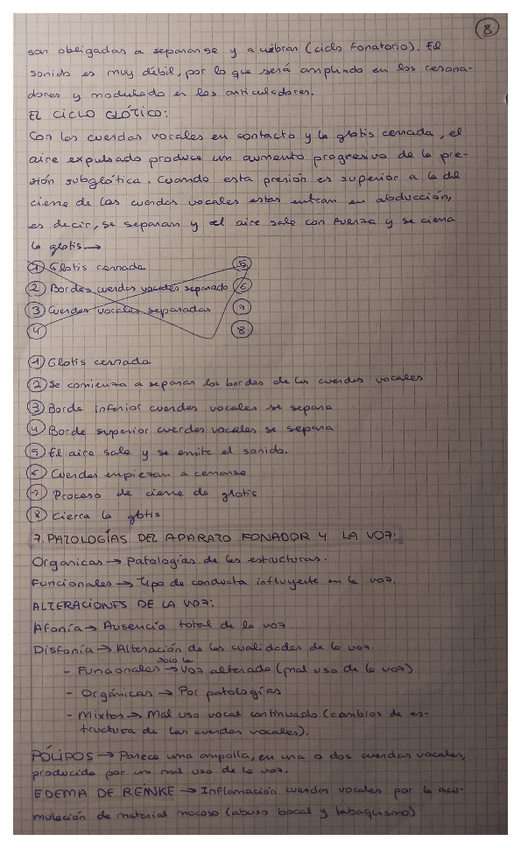 8
son obligadas a separarse y a vibrar (ciclo fonatorio). El
sonido es muy débil, por lo que será ampliado en los resona-
dores y modulado en los articuladores.
EL CICLO GLÓTICO:
Con las cuerdas vocales en contacto y la glotis cerrada, el
aire expulsado produce un aumento progresivo de la pre-
sión subglótica. Cuando esta presión es superior a la del
cierre de las cuerdas vocales estas entran en abducción,
es decir, se separan y el aire sale con fuerza y se cierra
la glotis →
1 Glotis cerrada 5
2 Bordes cuerdas vocales separado 6
3 Cuerdas vocales separadas 7
4 8
1 Glotis cerrada
2 Se comienza a separar los bordes de las cuerdas vocales
3 Borde inferior cuerdas vocales se separa
4 Borde superior cuerdas vocales se separa
5 El aire sale y se emite el sonido.
6 Cuerdas empiezan a cerrarse
7 Proceso de cierre de glotis
8 Cierra la glotis
7. PATOLOGÍAS DEL APARATO FONADOR Y LA VOZ:
Organicas → Patologías de las estructuras.
Funcionales → Tipo de conducta influyente en la voz.
ALTERACIONES DE LA VOZ:
Afonía → Ausencia total de la voz
Disfonía → Alteración de las cualidades de la voz.
- Funcionales → solo la voz alterada (mal uso de la voz)
- Orgánicas → Por patologías
- Mixtos → Mal uso vocal continuado (cambios de es-
tructura de las cuerdas vocales).
PÓLIPOS → Parece una ampolla, en una o dos cuerdas vocales,
producida por un mal uso de la voz.
EDEMA DE REINKE → Inflamación cuerdas vocales por la acu-
mulación de material mucoso (abuso bocal y tabaquismo)